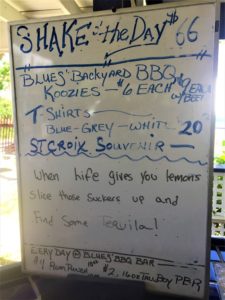 SHAKE "the DAY $66
BLUES' BACKYARD BBQ
KOOZIES - $6 EACH $9 EACH
W/BEER
T-SHIRTS
BLUE-GREY-WHITE 20
ST CROIX SOUVENIR
When life gives you lemons
slice those suckers up and
find some Tequila!
EVERY DAY @ BLUES' BBQ BAR
$4 RUM PUNCH $2, 16oz TALLBOY PBR